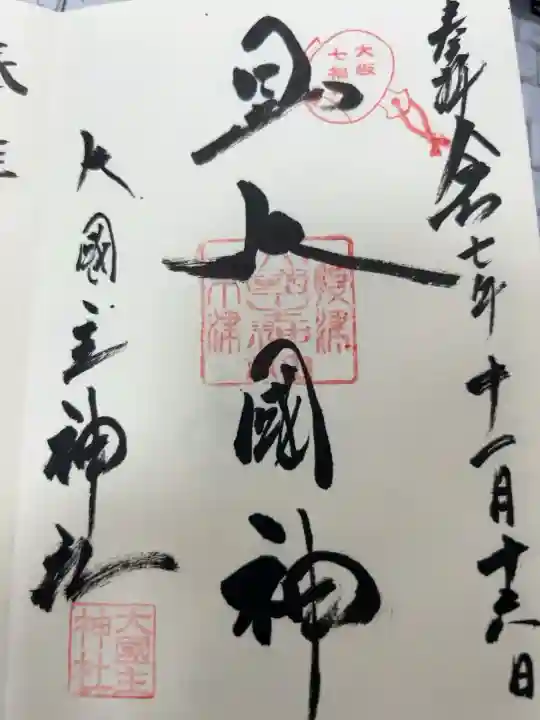 奉拝 令和七年十一月十六日
大阪
七福
大國神
大國主神社
大國主
神社